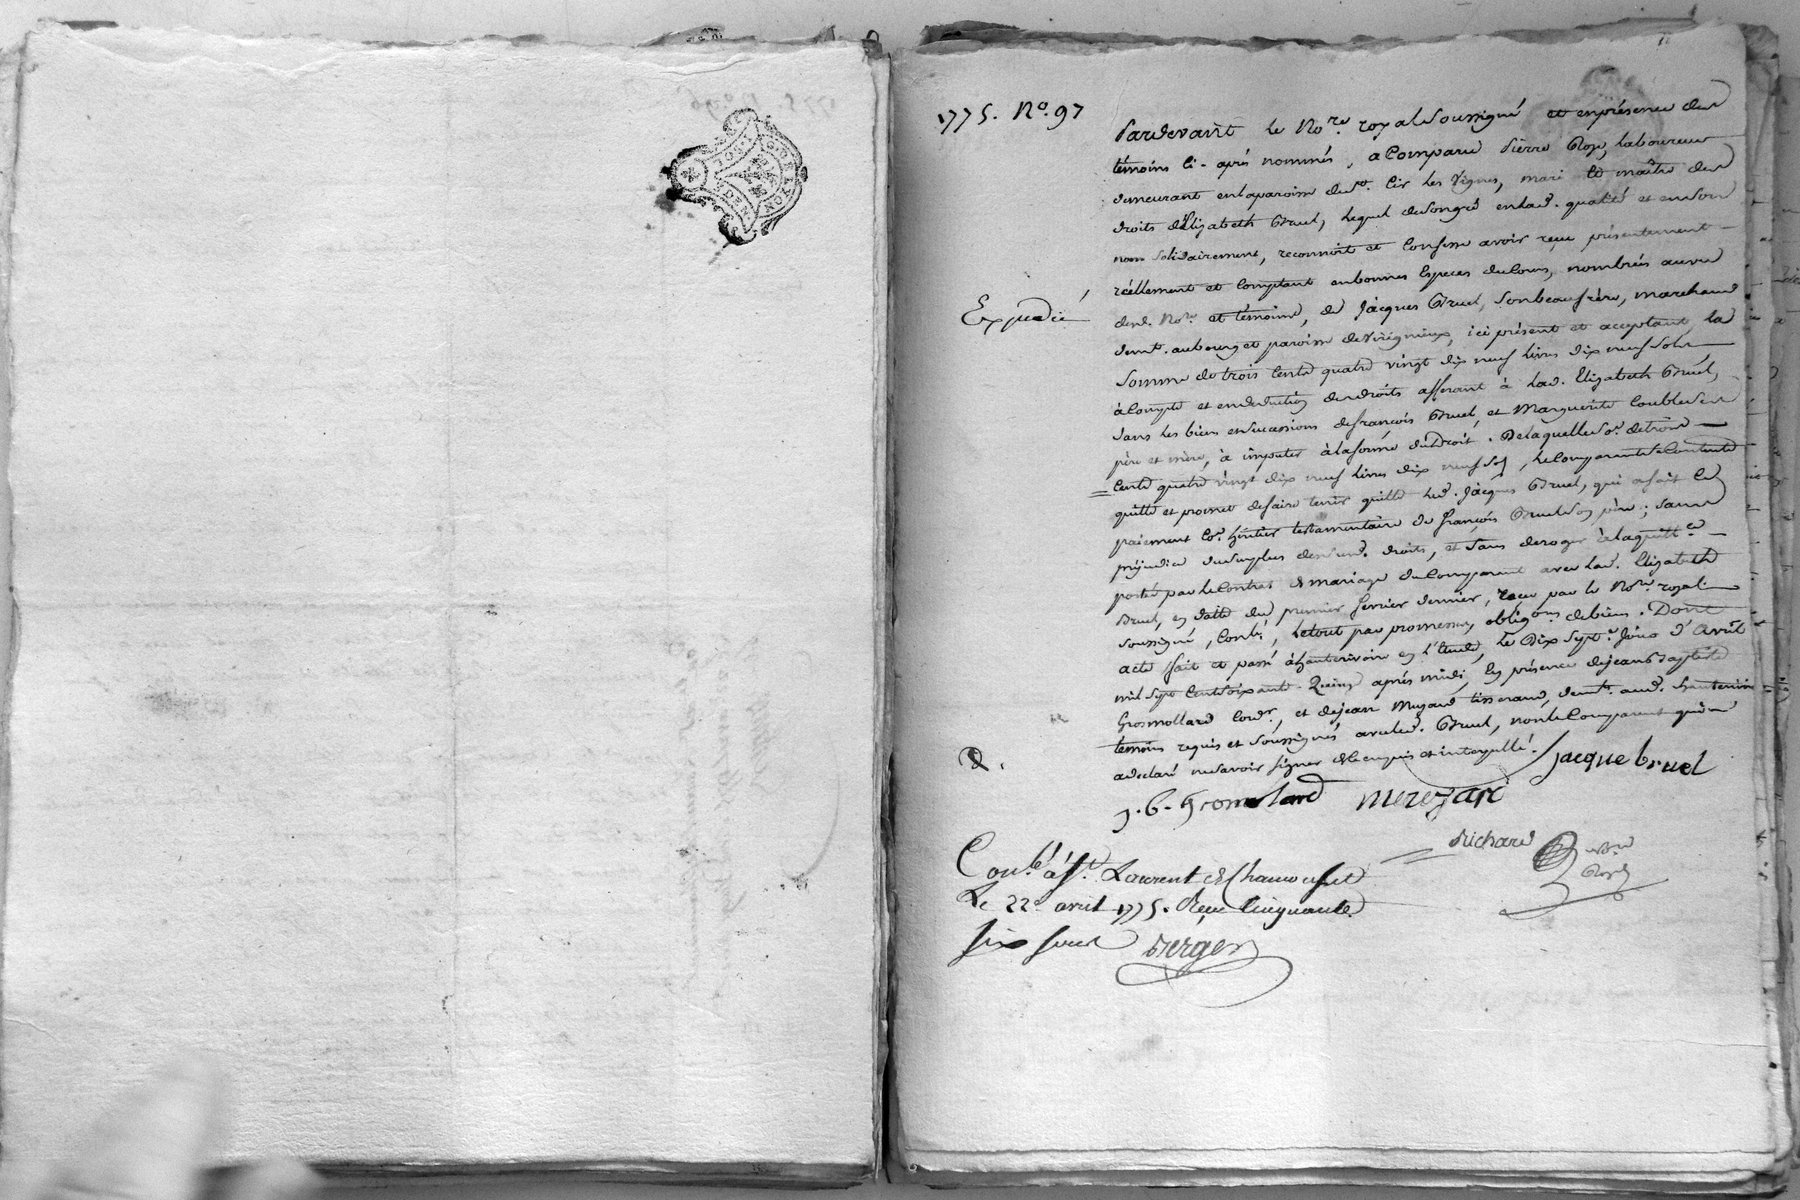 GÉN. DE LYON
2 SOLS
1775. N.º 97
Pardevant le No.re royal soussigné et en présence des
témoins ci-après nommés, a comparu Pierre laboureur
demeurant en la paroisse de St. Cir les Vignes, mari et maître des
droits d'Elizabeth Bruel, lequel de son gré en lad. qualité et en son
nom solidairement, reconnoit et confesse avoir reçu présentement
réellement et comptant en bonnes especes du cours, nombrées au vu
desd. No.re et témoins, de Jacques Bruel, son beaufrère, marchand
Expedié
demt. au bourg et paroisse de Virigneux, ici présent et acceptant, la
somme de trois cents quatre vingt dix neuf livres dix neuf sols
à compte et en déduction des droits afferant à lad. Elizabeth Bruel,
dans les biens et successions de françois Bruel et Marguerite ses
père et mère, à imputer à la forme du Droit. De laquelle so.e de trois
cents quatre vingt dix neuf livres dix neuf s., le comparant se contente
quitte et promet de faire tenir quitte led. Jacques Bruel, qui a fait le
paiement co.e héritier testamentaire de françois Bruel son père; sans
préjudice du surplus desd. droits, et sans deroger à la quitt.ce
portée par le contrat de mariage du comparant avec lad. Elizabeth
Bruel, en datte du premier fevrier dernier, reçu par le No.re royal
soussigné, le tout par promesses, oblig.ons de biens. Dont
acte fait et passé à hauterivoire en l'étude, le dix sept.e jour d'Avril
mil sept cent soixante-Quinze après midi, en présence de jean Baptiste
Grosmollard cord.r, et de jean tisserand, demt. aud. hauterivoire
témoins requis et soussignés avec led. Bruel, non le comparant qui
a declaré ne savoir signer de ce enquis et interpellé.
D.
jacque bruel
j. b. Gromolard
Richard
No.re
Roy.l
Con.lé à St. Laurent de Chamousset
Le 22e avril 1775. Reçu cinquante
six sous Berger